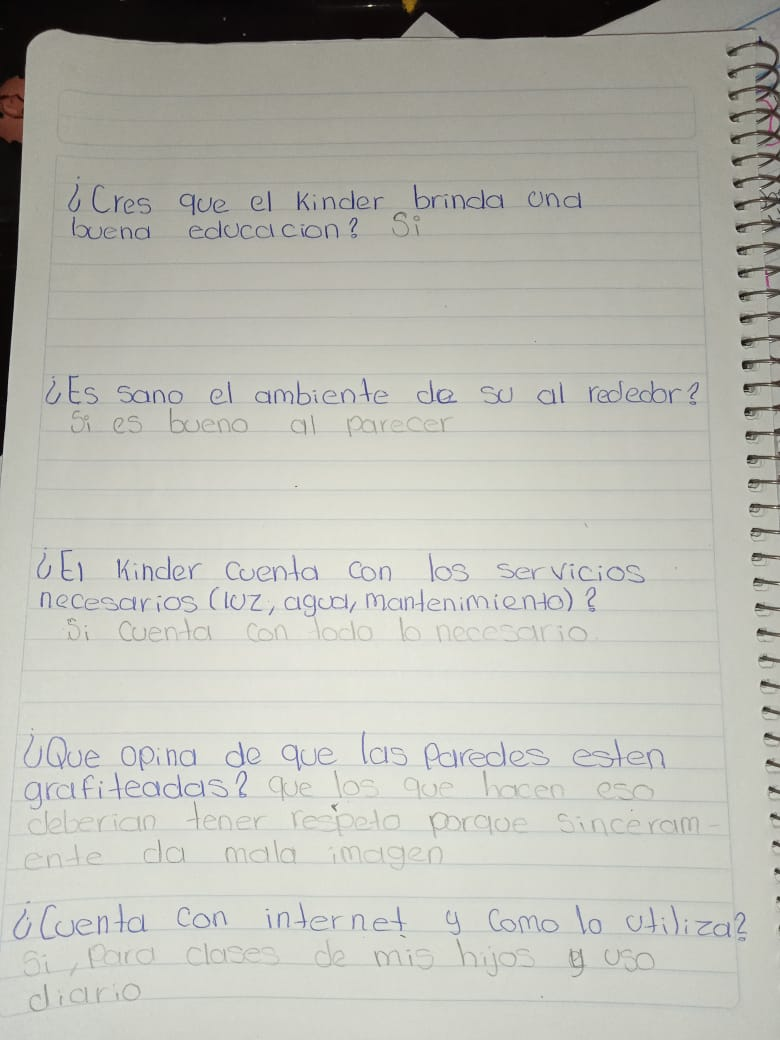 ¿Cres que el Kinder brinda una
buena educacion? Si
¿Es sano el ambiente de su al rededor?
Si es bueno al parecer
¿El Kinder cuenta con los servicios
necesarios (luz, agua, mantenimiento)?
Si cuenta con todo lo necesario
¿Que opina de que las paredes esten
grafiteadas? que los que hacen eso
deberian tener respeto porque sinceram-
ente da mala imagen
¿Cuenta con internet y como lo utiliza?
Si, para clases de mis hijos y uso
diario